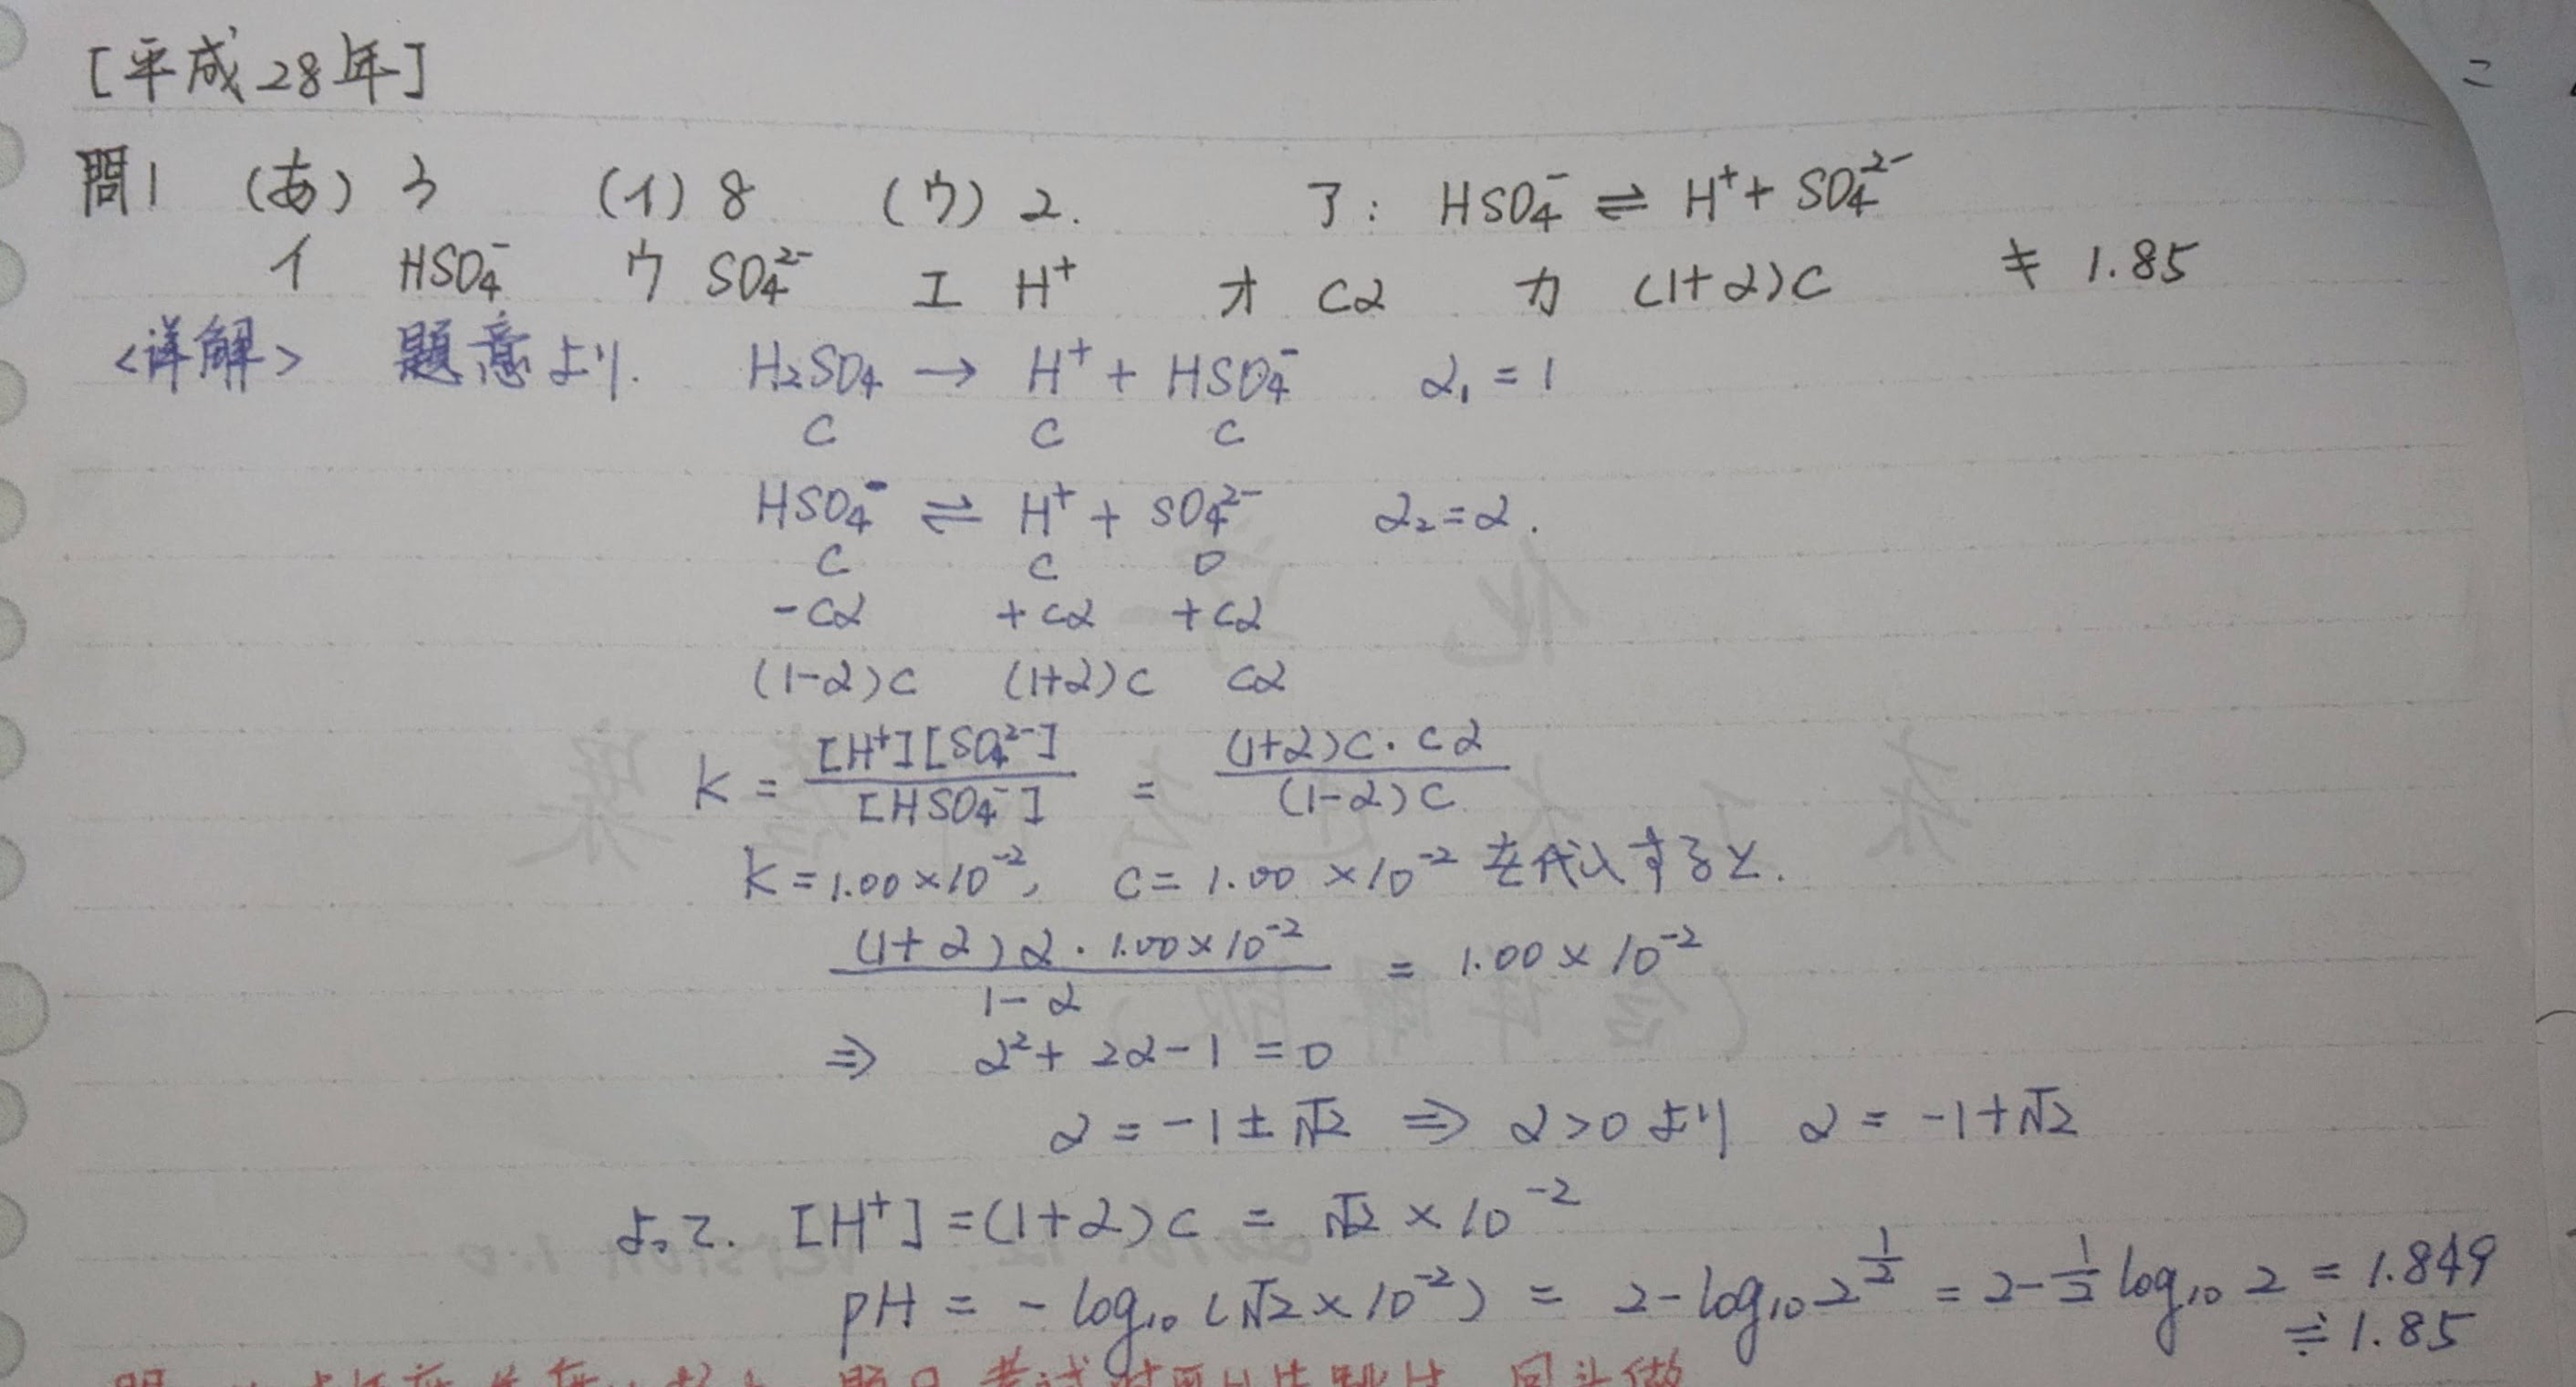 [平成28年]
問1 (あ) 3 (イ) 8 (ウ) 2. ア: HSO₄⁻ ⇌ H⁺ + SO₄²⁻
イ HSO₄⁻ ウ SO₄²⁻ エ H⁺ オ Cα カ (1+α)C キ 1.85
<详解> 題意より. H₂SO₄ → H⁺ + HSO₄⁻ α₁ = 1
C C C
HSO₄⁻ ⇌ H⁺ + SO₄²⁻ α₂ = α.
C C 0
-Cα +Cα +Cα
(1-α)C (1+α)C Cα
K = [H⁺][SO₄²⁻] / [HSO₄⁻] = (1+α)C・Cα / (1-α)C
K = 1.00×10⁻², C = 1.00×10⁻² を代入すると.
(1+α)α・1.00×10⁻² / 1-α = 1.00×10⁻²
⇒ α² + 2α - 1 = 0
α = -1±√2 ⇒ α>0 より α = -1+√2
よって. [H⁺] = (1+α)C = √2 × 10⁻²
pH = -log₁₀(√2×10⁻²) = 2-log₁₀2^(1/2) = 2-1/2 log₁₀2 = 1.849
≒ 1.85